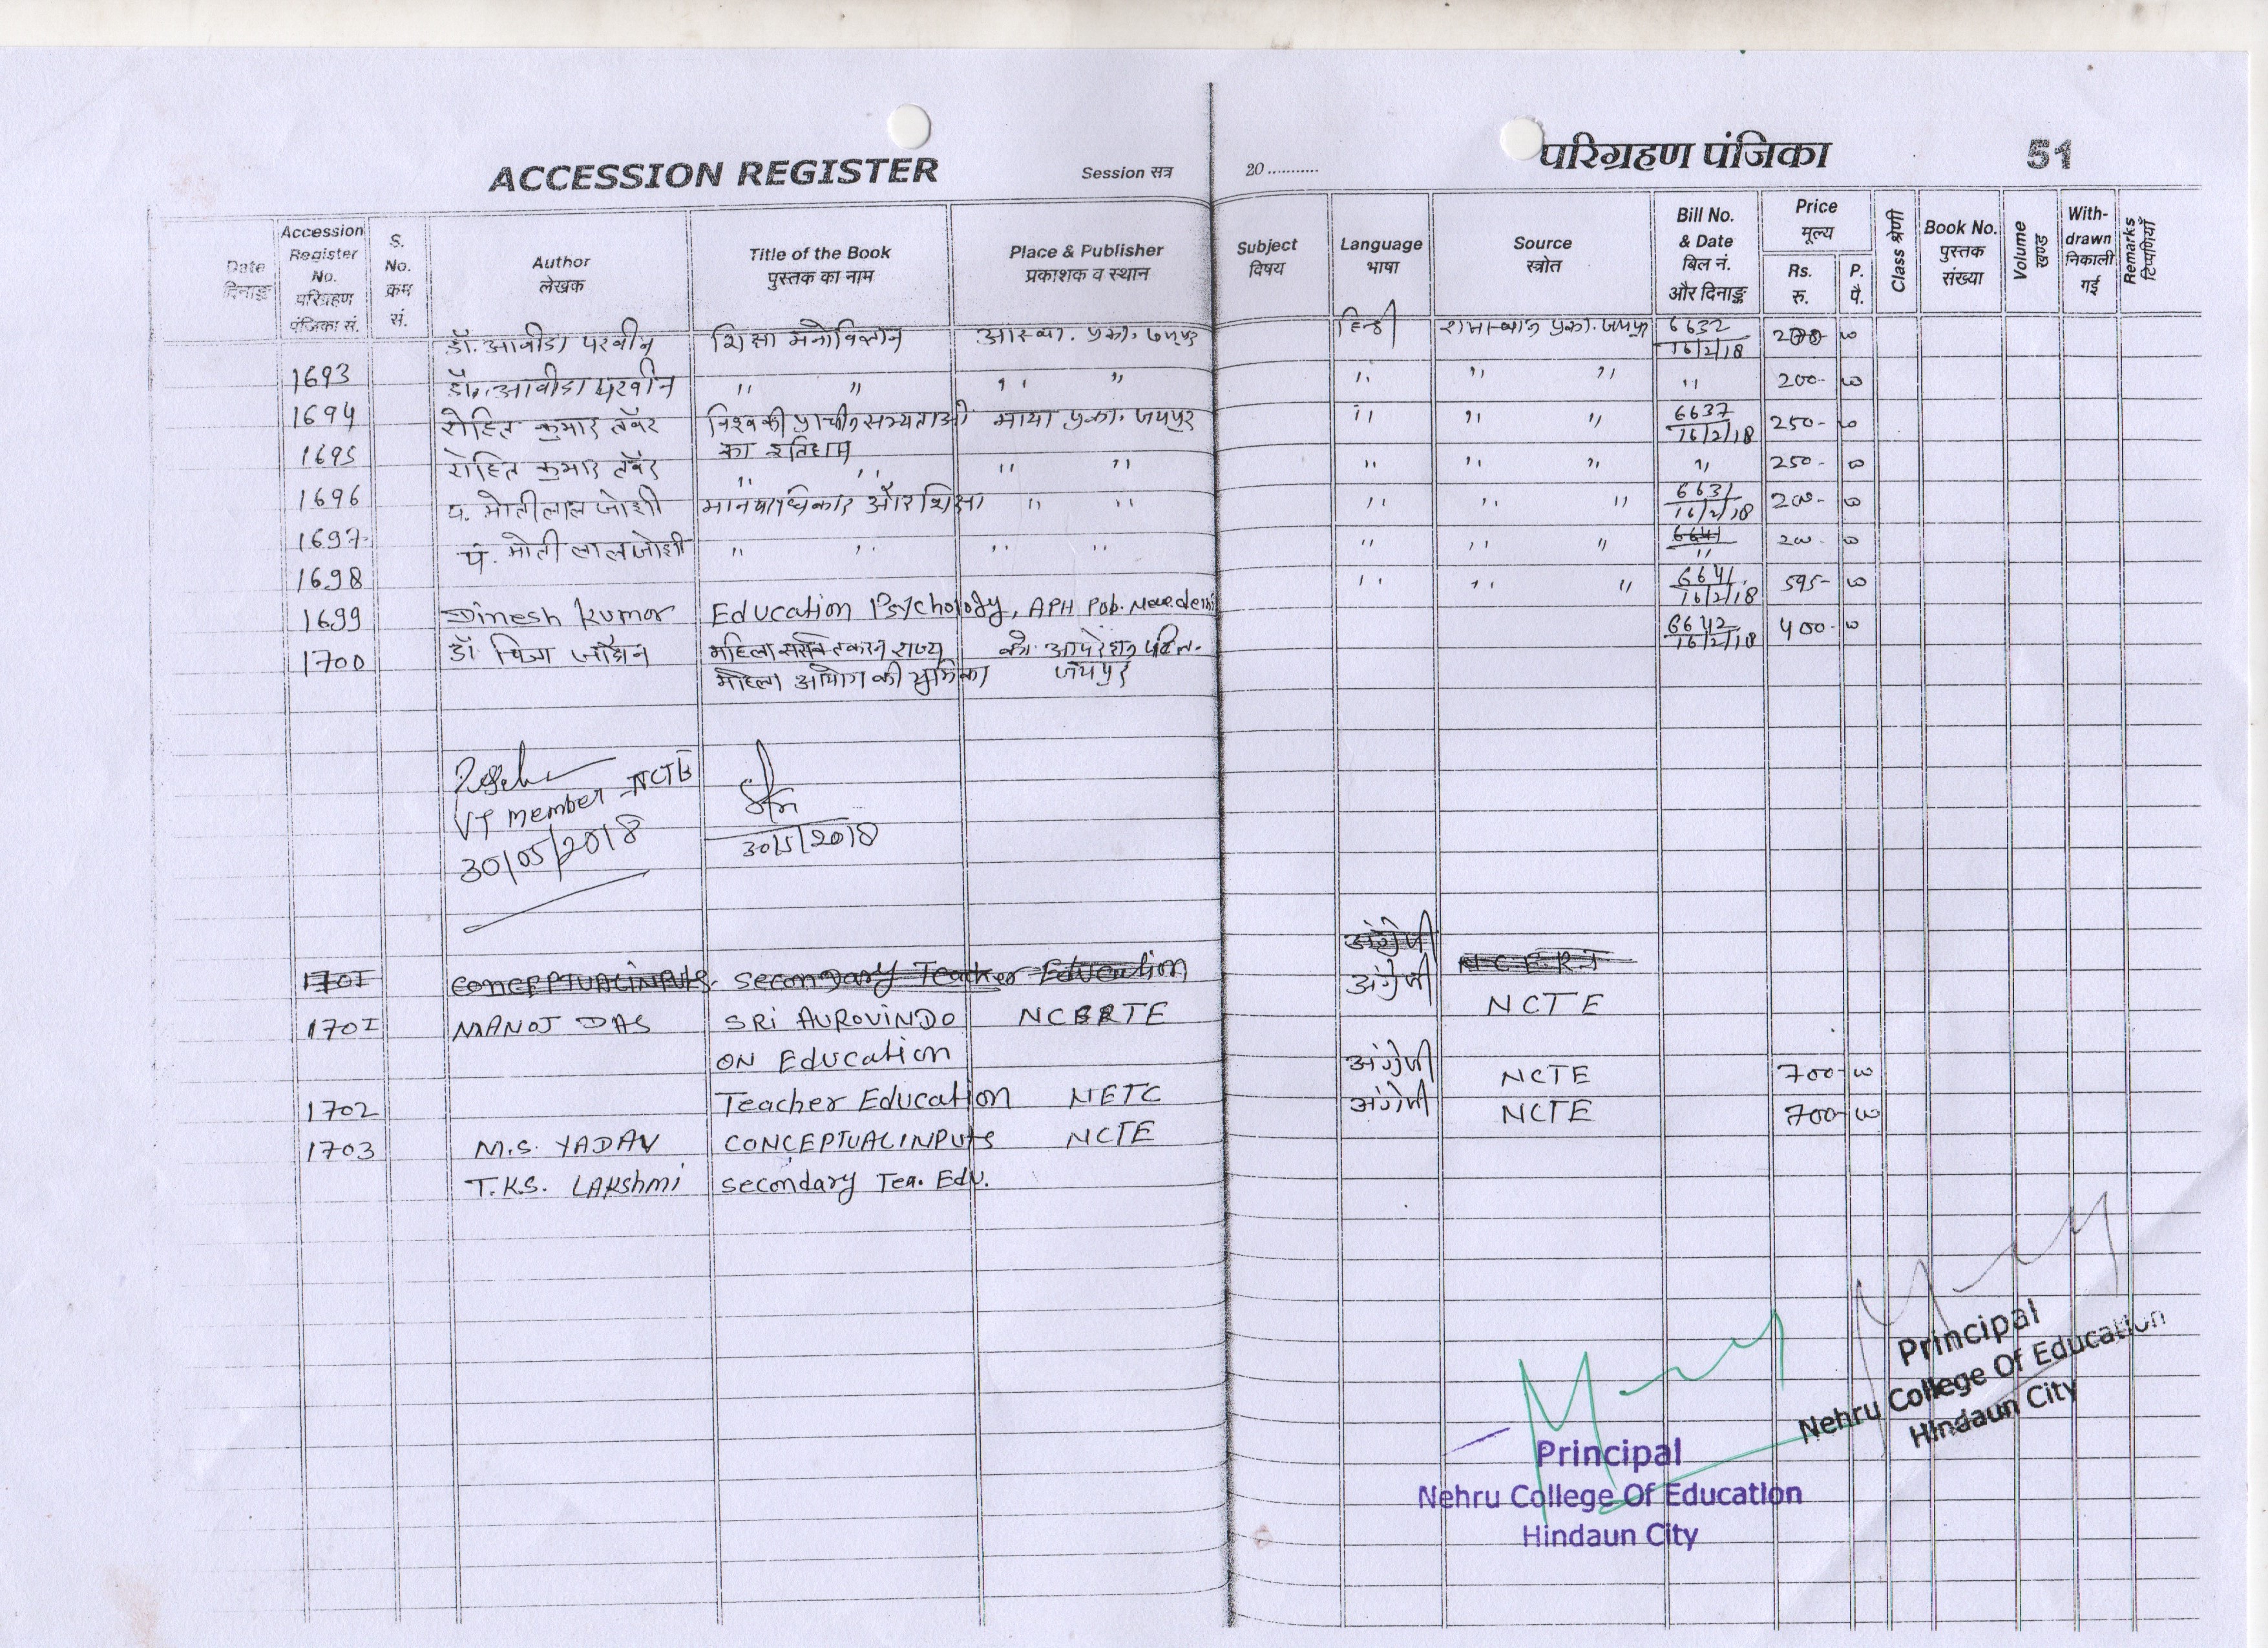 ACCESSION REGISTER
Session सत्र
20 ...........
परिग्रहण पंजिका
51
Date दिनाङ्क
Accession Register No. परिग्रहण पंजिका सं.
S. No. क्रम सं.
Author लेखक
Title of the Book पुस्तक का नाम
Place & Publisher प्रकाशक व स्थान
Subject विषय
Language भाषा
Source स्त्रोत
Bill No. & Date बिल नं. और दिनाङ्क
Price मूल्य
Rs. रु.
P. पै.
Class श्रेणी
Book No. पुस्तक संख्या
Volume खण्ड
With-drawn निकाली गई
Remarks टिप्पणियाँ
1693 डॉ. आबीडा परवीन शिक्षा मनोविज्ञान आस्था. प्रका. जयपुर हिन्दी प्रका. जयपुर 6632 16/2/18 200
1694 डॉ. आबीडा परवीन " " " " " " " " 200-
1695 रोहित कुमार तंवर विश्व की प्राचीन सभ्यताओ माया प्रका. जयपुर " " " 6637 16/2/18 250-
का इतिहास
1696 रोहित कुमार तंवर " " " " " " " " 250-
1697 पं. मोतीलाल जोशी मानवाधिकार और शिक्षा " " " " " 6631 16/2/18 200-
1698 पं. मोती लाल जोशी " " " " " " " 6641 " 200-
1699 Dinesh Kumar Education Psychology, APH Pub. " " " 6641 16/2/18 595-
1700 डॉ महिला राज्य जयपुर 6642 16/2/18 400-
महिला आयोग की भूमिका
VT member NCTE
30/05/2018
30/5/2018
1701 CONCEPTUAL INPUTS. Secondary Teacher Education अंग्रेजी NCERT
1701 MANOJ DAS SRI AUROVINDO अंग्रेजी NCTE
ON Education
1702 Teacher Education NETC अंग्रेजी NCTE 700-
1703 M.S. YADAV CONCEPTUAL INPUTS NCTE अंग्रेजी NCTE 700-
T.K.S. LAKshmi Secondary Tea. Edu.
Principal
Nehru College Of Education
Hindaun City
Principal
Nehru College Of Education
Hindaun City